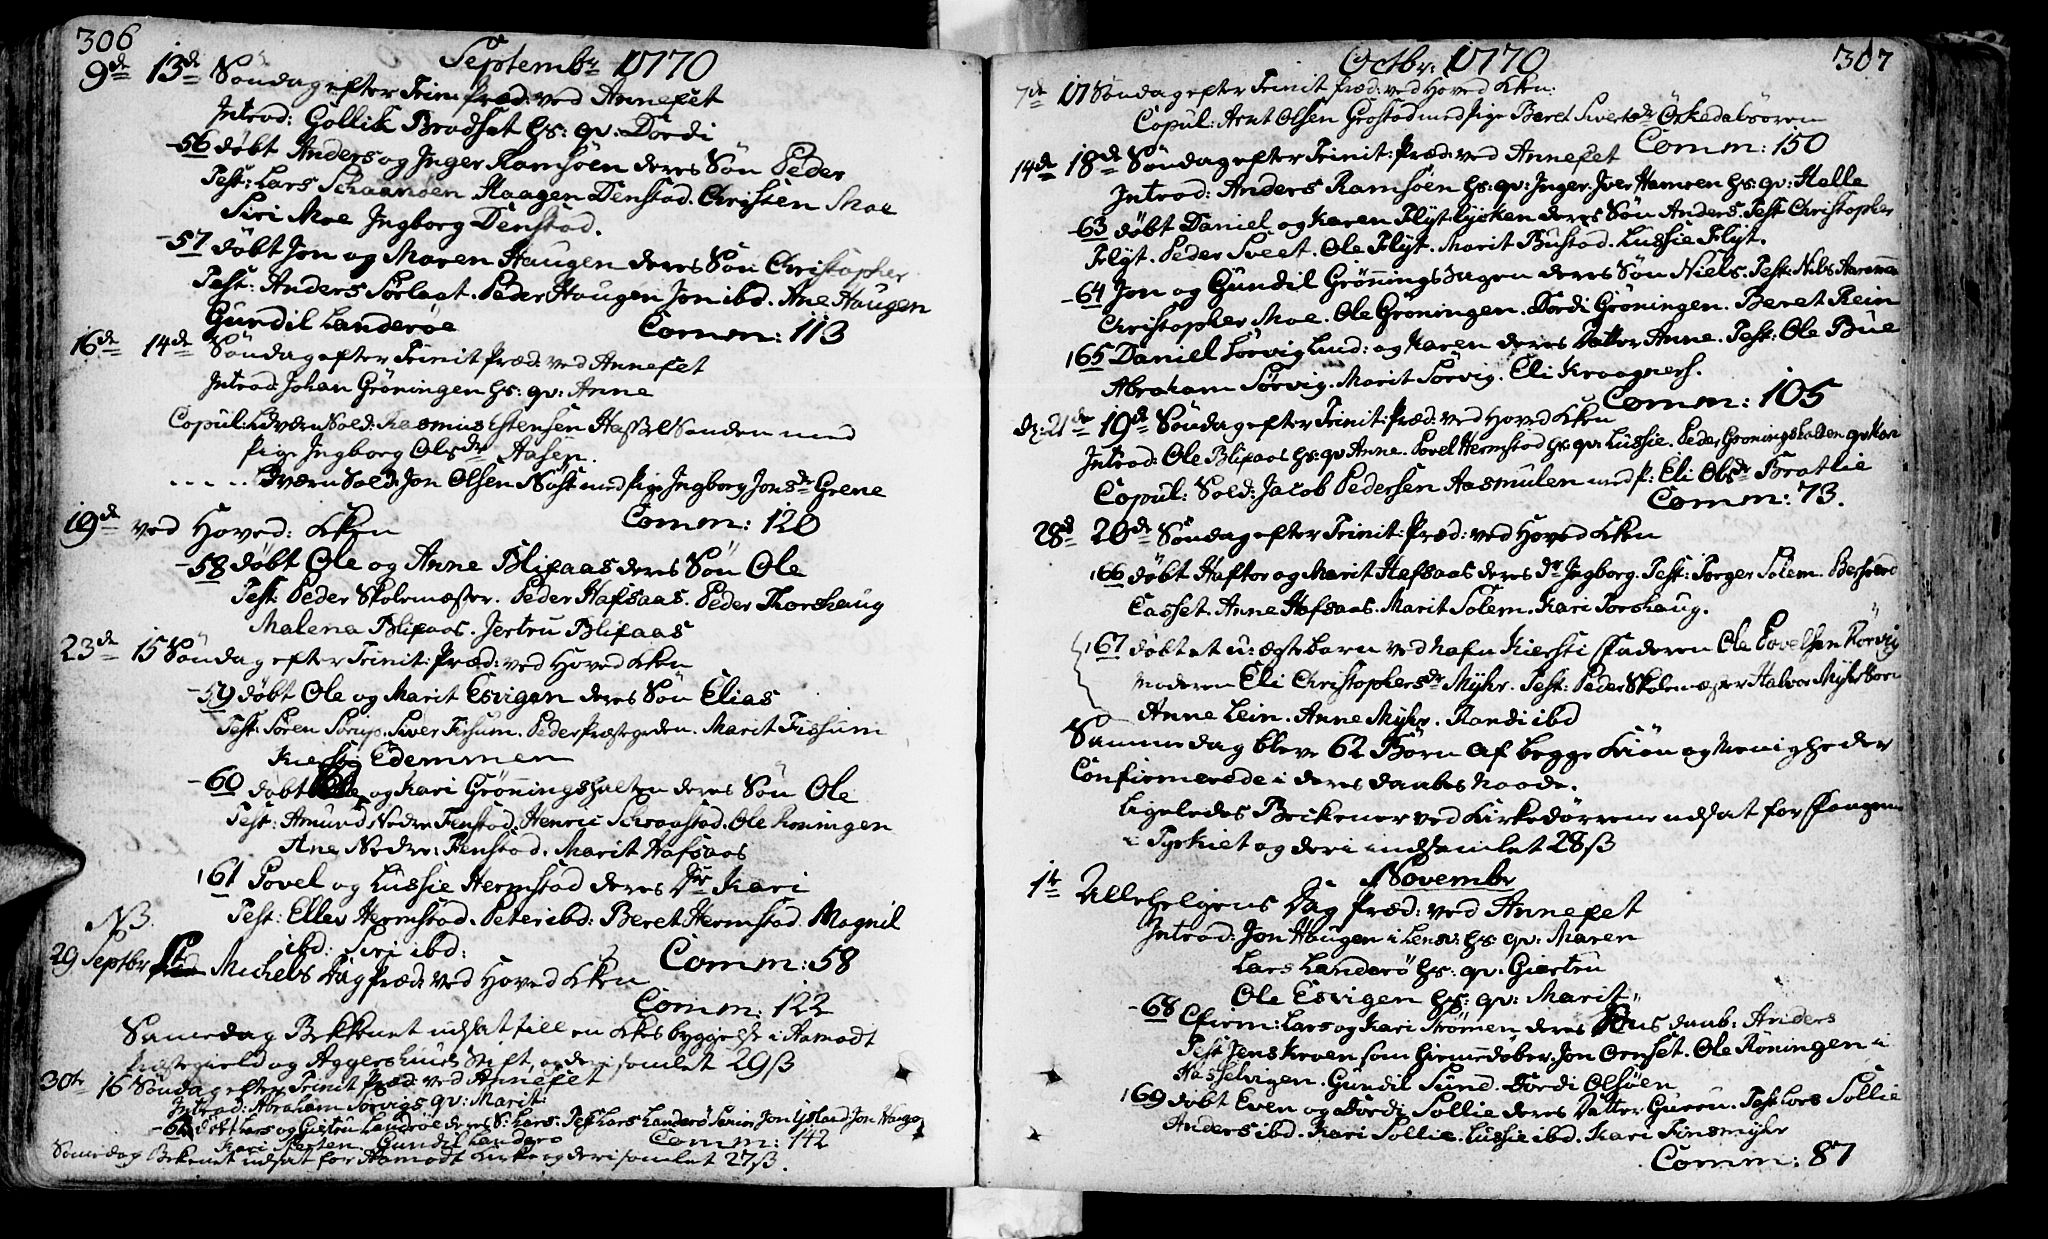 306
Septembr 1770
9de 13de Søndag efter Trin. Præd: ved Annexet
Introd: Gollik Bradset hs: qv: Dordi
-56 døbt Anders og Inger Ramsøen deres Søn Peder
Test: Lars Schaanøen Haagen Denstad. Christen Moe
Siri Moe Ingborg Denstad.
-57 døbt Jon og Maren Haugen deres Søn Christopher
Test: Anders Sørlagt. Peder Haugen Jon ibd. Ane Haugen
Gundil Landerøe Comm: 113
16de 14de Søndag efter Trinit Præd: ved Annexet
Introd: Johan Grøningen hs: qv: Anne
Copul: Sold: Rasmus Estensen Hassel Sanden med
Pige Ingborg Olsdr Aasen.
Sold: Jon Olsen Nøst med pige Ingborg Jonsdr Grene
19de ved Hoved: Kken Comm: 120
-58 døbt Ole og Anne Blixaas deres Søn Ole
Test: Peder Skolemester. Peder Hafsaas. Peder Thorshaug
Malena Blixaas. Jertru Blixaas
23de 15 Søndag efter Trinit: Præd: ved Hoved Kken
-59 døbt Ole og Marit Esvigen deres Søn Elias
Test: Søren Sørvig. Siver Fissum. Peder Præstegrden. Marit Fissum
Edemmen
-60 døbt Ole og Kari Grønningshalten deres Søn Ole
Test: Amund Nedre Fenstad. Henric Schaanstad. Ole Røningen
Ane Nedre: Fenstad. Marit Hafsaas
161 Povel og Lussie Hermstad deres Dr Kari
Test: Ellev Hermstad. Peter ibd: Beret Hermstad Magnil
NB. ibd: Siri ibd: Comm: 58
29 Septbr Michels Dag Præd: ved Hoved Kken
Comm: 122
Samedag Bekkenet udsat till en Kks bygge i Aamodt
Præstegield og Aggershuus Stift, og deri samlet 29 ß
30te 16 Søndag efter Trinit Præd: ved Annexet
Introd: Abraham Sørvigs qv: Marit:
-62 døbt Lars og Giertru Landrøe deres S: Lars. Test Lars Landerø Jon Lysland Jon Haugen
Kari Gundil Landerø Comm: 142
Samedag Bekenet udsat for Aamodt Kirke og deri samlet 27 ß.
307
Octbr: 1770
7de 17 Søndag efter Trinit Præd: ved Hoved Kken:
Copul: Arnt Olsen Grostad med pige Beret Sivertsdr Ørkedalsøren
Comm: 150
14de 18de Søndag efter Trinit: Præd: ved Annexet
Introd: Anders Ramsøen hs: qv: Inger. Iver Hamren hs: qv: Helle
-63 døbt Daniel og Karen Flyt deres Søn Anders. Test Christopher
Flyt. Peder Sveet. Ole Flyt. Marit Bustad. Lussie Flyt.
-64 Jon og Gundil Grønnings deres Søn Niels. Test: Nils
Christopher Moe. Ole Grøningen. Dordi Grøningen. Beret Rein
165 Daniel Sørvig Lund: og Karen deres Datter Anne. Test: Ole Bue
Abraham Sørvig. Marit Sørvig. Eli Kraagnes.
Comm: 105
d: 21de 19de Søndag efter Trinit: Præd: ved Hoved Kken
Introd: Ole Blixaas hs: qv Anne. Povel Hermstad hs: qv: Lussie. Peder Grøningshalten qv Kari
Copul: Sold: Jacob Pedersen Aasmulen med p: Eli Olsdr Bratlie
Comm: 73.
28de 20de Søndag efter Trinit: Præd: ved Hoved Kken
166 døbt Haftor og Marit Hafsaas deres Dr Ingborg. Test: Torger Solem.
Casset. Anne Hafsaas. Marit Solem. Kari Torshaug.
167 døbt et u:ægte barn ved nafn Kiersti Faderen Ole Povelsen Rørvig
Moderen Eli Christophersdr Myhr. Test: Peder Skolemester Halvor Myhr
Anne Lein. Anne Myhr. Randi ibd
Samme dag bleve 62 Børn af begge Kiøn og Menigheder
Confirmerede i deres daabes Naade.
Ligeledes Beckener ved Kirkedørrene udsat for Fangerne
i Tyrkiet og deri indsamlet 28 ß
Novembr
1te Allehelgens Dag Præd: ved Annexet
Introd: Jon Haugen i Lensv: hs: qv: Maren
Lars Landerø hs: qv: Giertru
Ole Esvigen hs: qv: Marit
-68 Cfirm: Lars og Kari Strømen deres Søns daab: Anders
Test: Jens Reven som Hiemmedøber. Jon Orenset. Ole Røningen i
Hasselvigen. Gundil Sund. Dordi Olsøen
169 døbt Even og Dordi Sollie deres Datter Guren. Test: Lars Sollie
Anders ibd. Kari Sollie. Lussie ibd. Kari Finsmyhr
Comm: 87